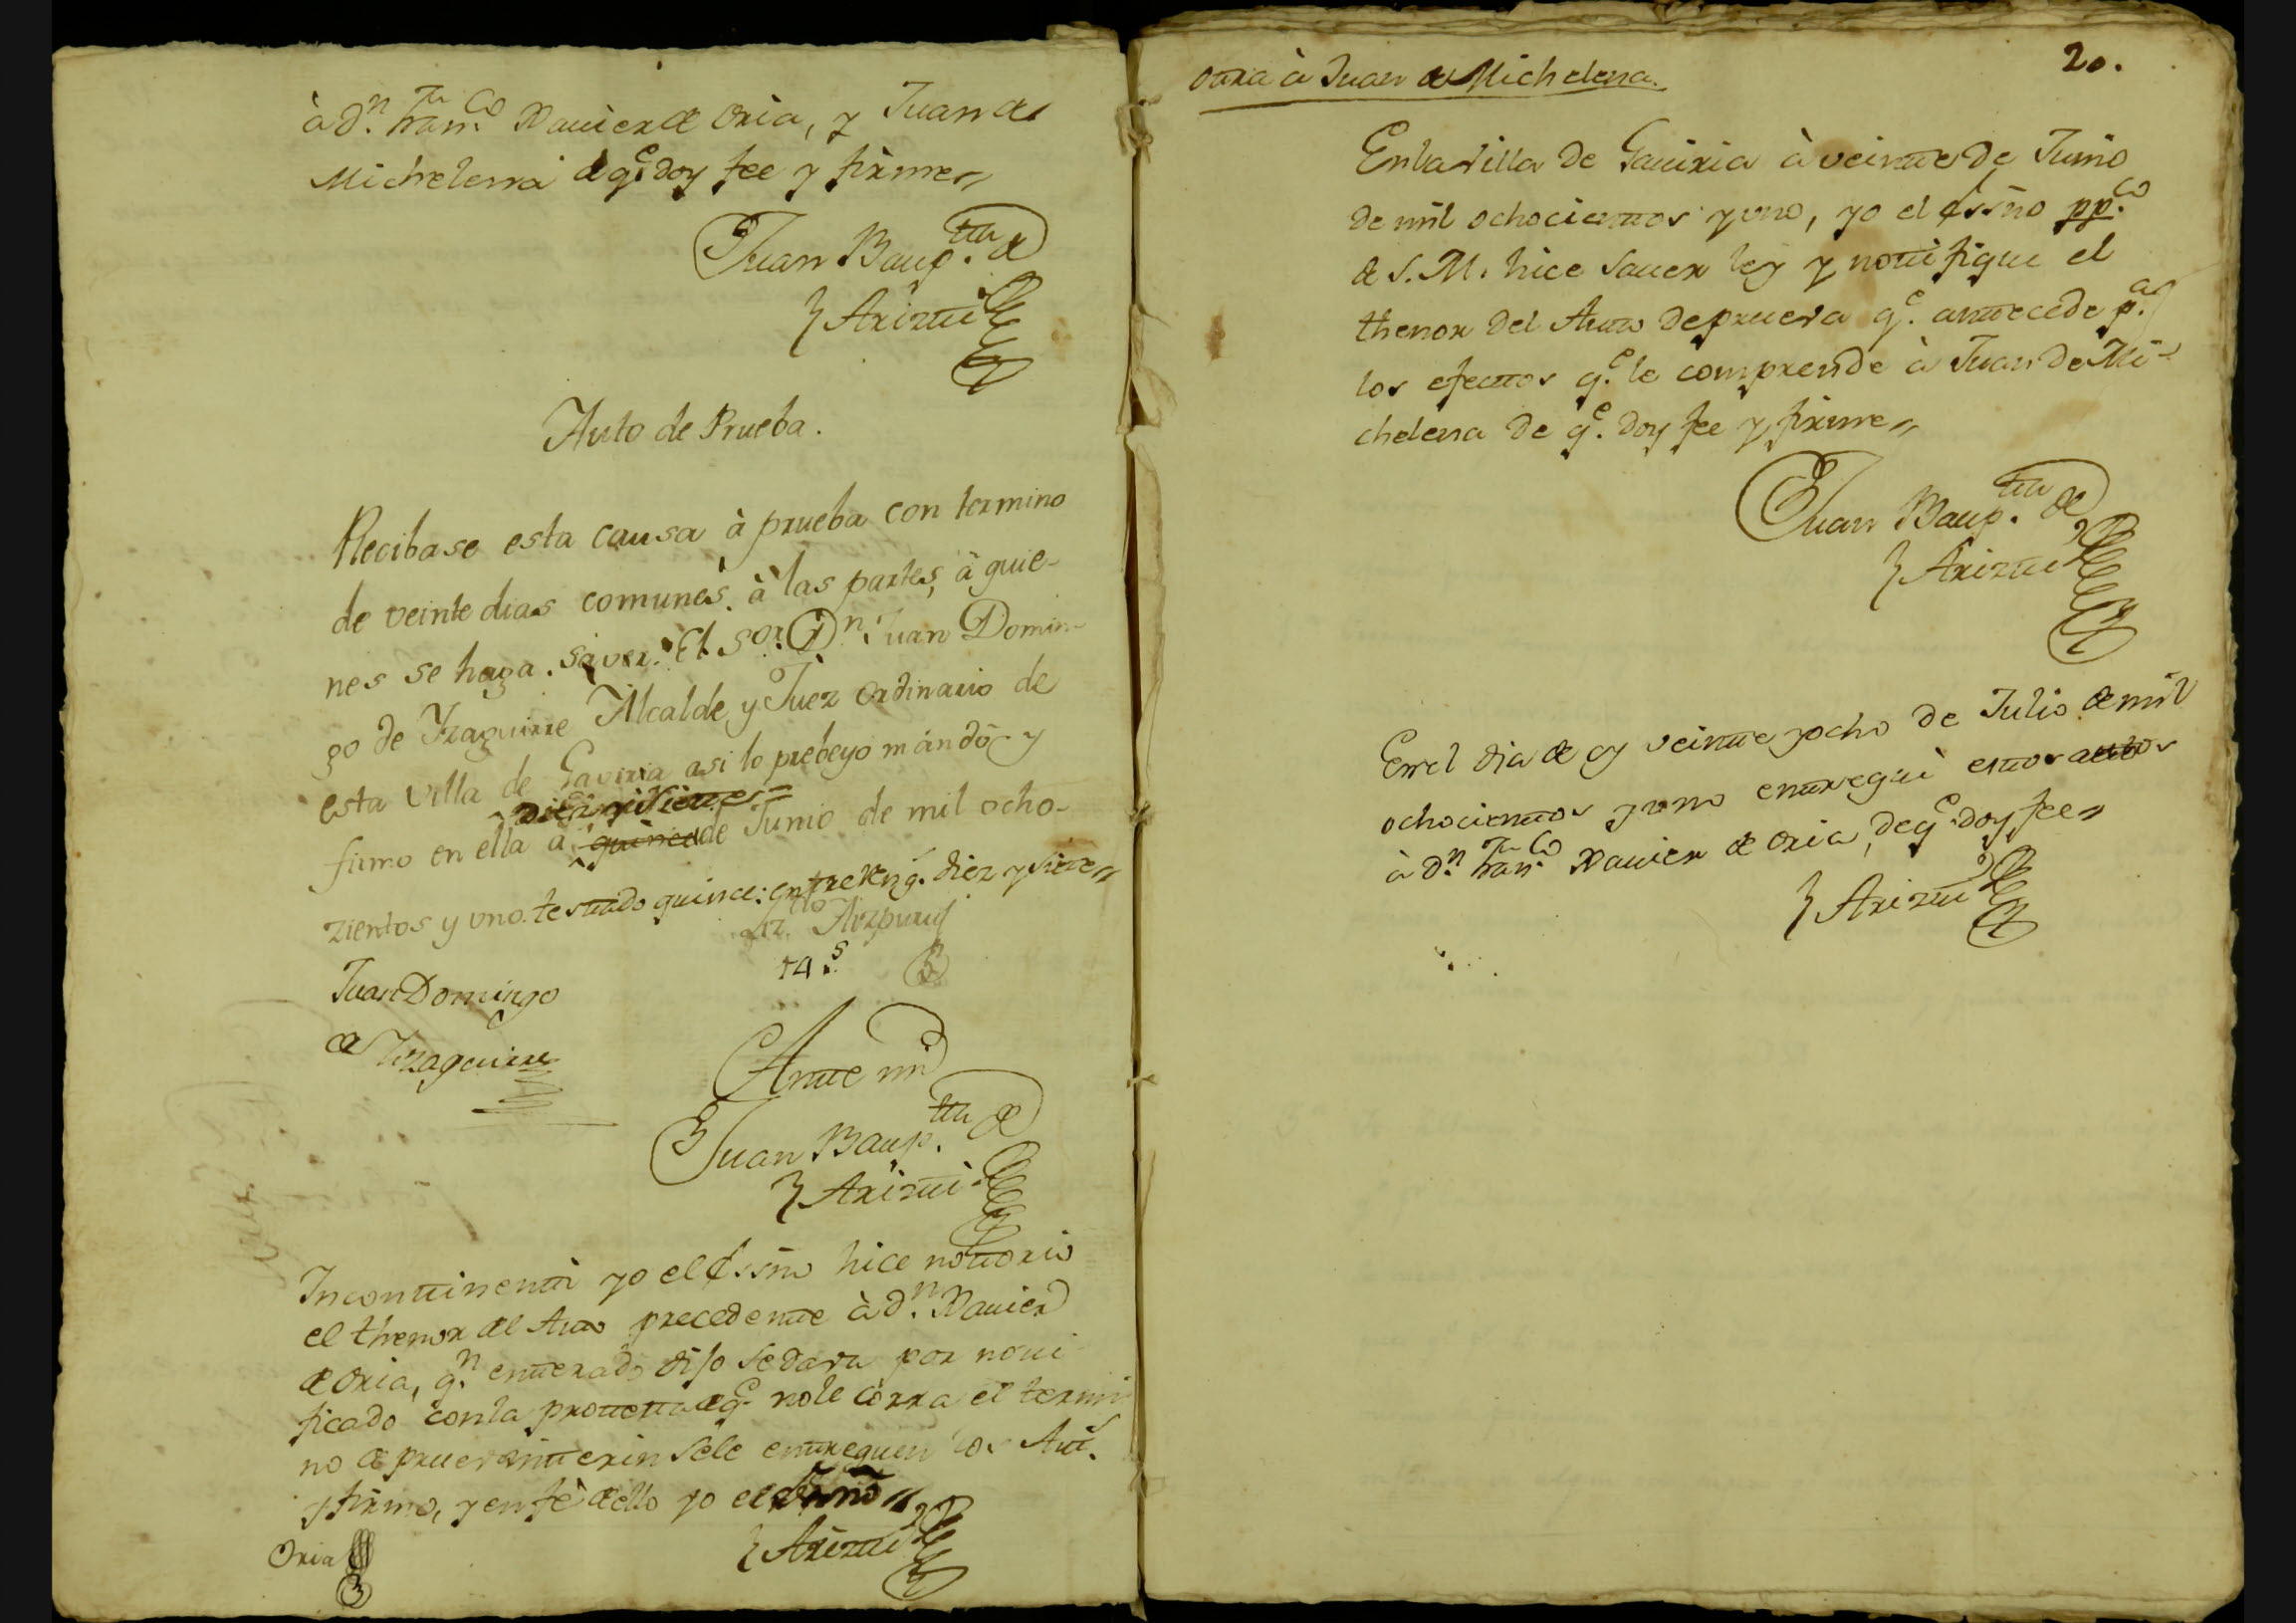 à Dn. Franco. Xauier de Oria, y Juan de
Michelena de qe. doy fee y firme
Juan Baupta. de
Arizti
Auto de Prueba.
Recibase esta causa à prueba con termino
de veinte dias comunès à las partes, à quie-
nes se haga saver. El Sor. Dn. Juan Domin-
go de Yzaguirre Alcalde y Juez ordinario de
esta villa de Gaviria asi lo prebeyo màndò y
diez y siete
firmo en ella à quince de Junio de mil ocho-
zientos y uno. testado quince: entre reng. diez y siete
Liz.do Aizpuru
Juan Domingo
de Yzaguirre
14 s.
Ante mi
Juan Baupta. de
Arizti
Incontinenti yo el Essño hice notorio
el thenor del Auto precedente à Dn. Xauier
de Oria, qn. enterado dijo se dava por noti
ficado con la protexta de qe. no le corra el termi
no de prueva interin se le entreguen los Aut.
y firmo, y en fè de ello yo el Essño
Oria
Arizti
otra à Juan de Michelena.
20.
En la villa de Gauiria à veinte de Junio
de mil ochocientos y uno, yo el Essño ppco.
de S.M. hice sauer ley y notifique el
thenor del Auto de prueva qe. antecede pa.
los efectos qe. le comprende à Juan de Mi-
chelena de qe. doy fee y firme
Juan Baupta. de
Arizti
En el dia de oy veinte y ocho de Julio de mil
ochocientos y uno entreguè estos autos
à Dn. Franco. Xauier de Oria, de qe. doy fee
Arizti